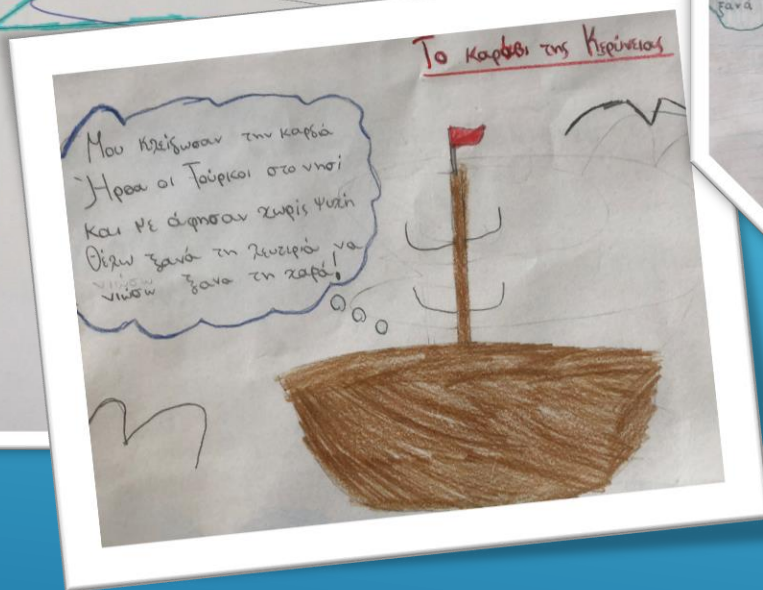 Το καράβι της Κερύνειας
Μου κλείδωσαν την καρδιά
Ήρθα οι Τούρκοι στο νησί
Και με άφησαν χωρίς ψυχή
Θέλω ξανά τη λευτεριά να
νιώσω ξανα τη χαρά!
ξανά